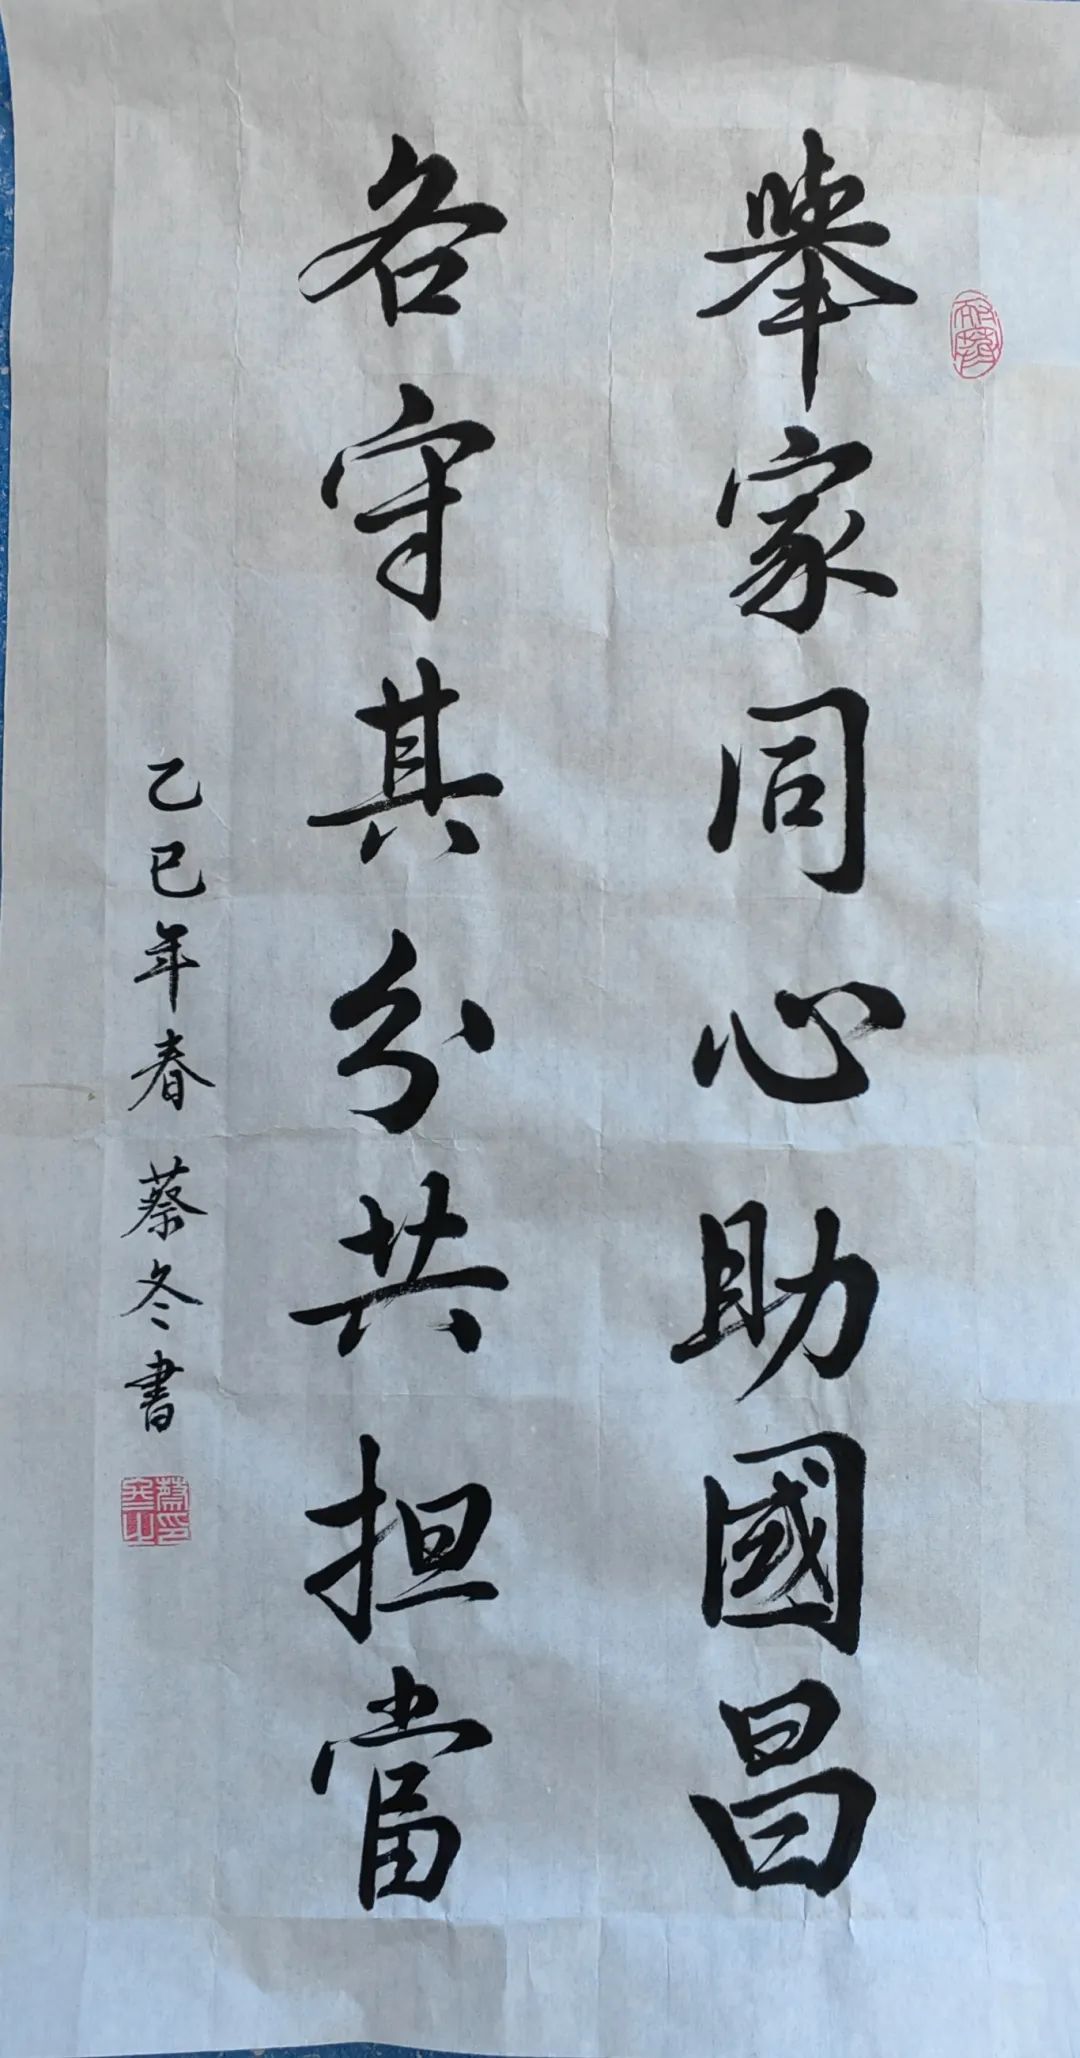 舉家同心助國昌
各守其分共担當
乙巳年春 蔡冬書